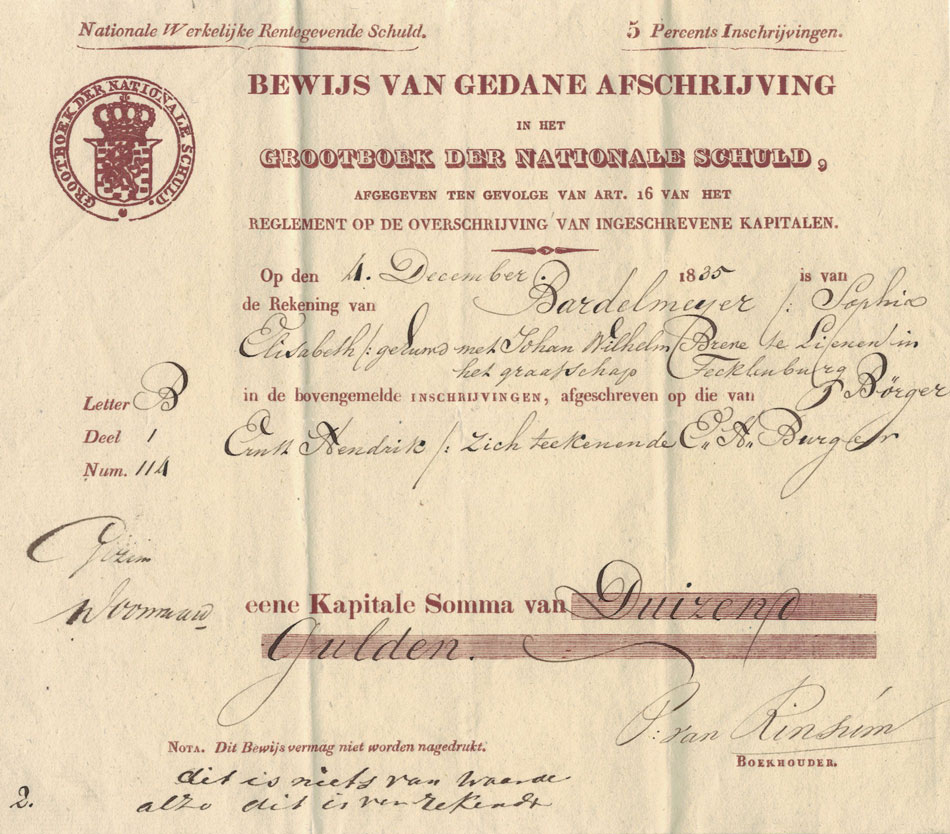 Nationale Werkelijke Rentegevende Schuld.
5 Percents Inschrijvingen.
GROOTBOEK DER NATIONALE SCHULD.
BEWIJS VAN GEDANE AFSCHRIJVING
IN HET
GROOTBOEK DER NATIONALE SCHULD,
AFGEGEVEN TEN GEVOLGE VAN ART. 16 VAN HET
REGLEMENT OP DE OVERSCHRIJVING VAN INGESCHREVENE KAPITALEN.
Op den 4. December 1835 is van
de Rekening van Bardelmeyer /: Sophia
Elisabeth /: gehuwd met Johan Wilhelm Brene te Lienen in
het graafschap Tecklenburg
Letter B
Deel 1
Num. 114
in de bovengemelde INSCHRIJVINGEN, afgeschreven op die van Börger
Ernst Hendrik /: zich teekenende E. H. Burger
eene Kapitale Somma van Duizend
Gulden.
P. van Rinsum
BOEKHOUDER.
NOTA. Dit Bewijs vermag niet worden nagedrukt.
dit is niets van waarde
alzo dit is verrekendt
2.